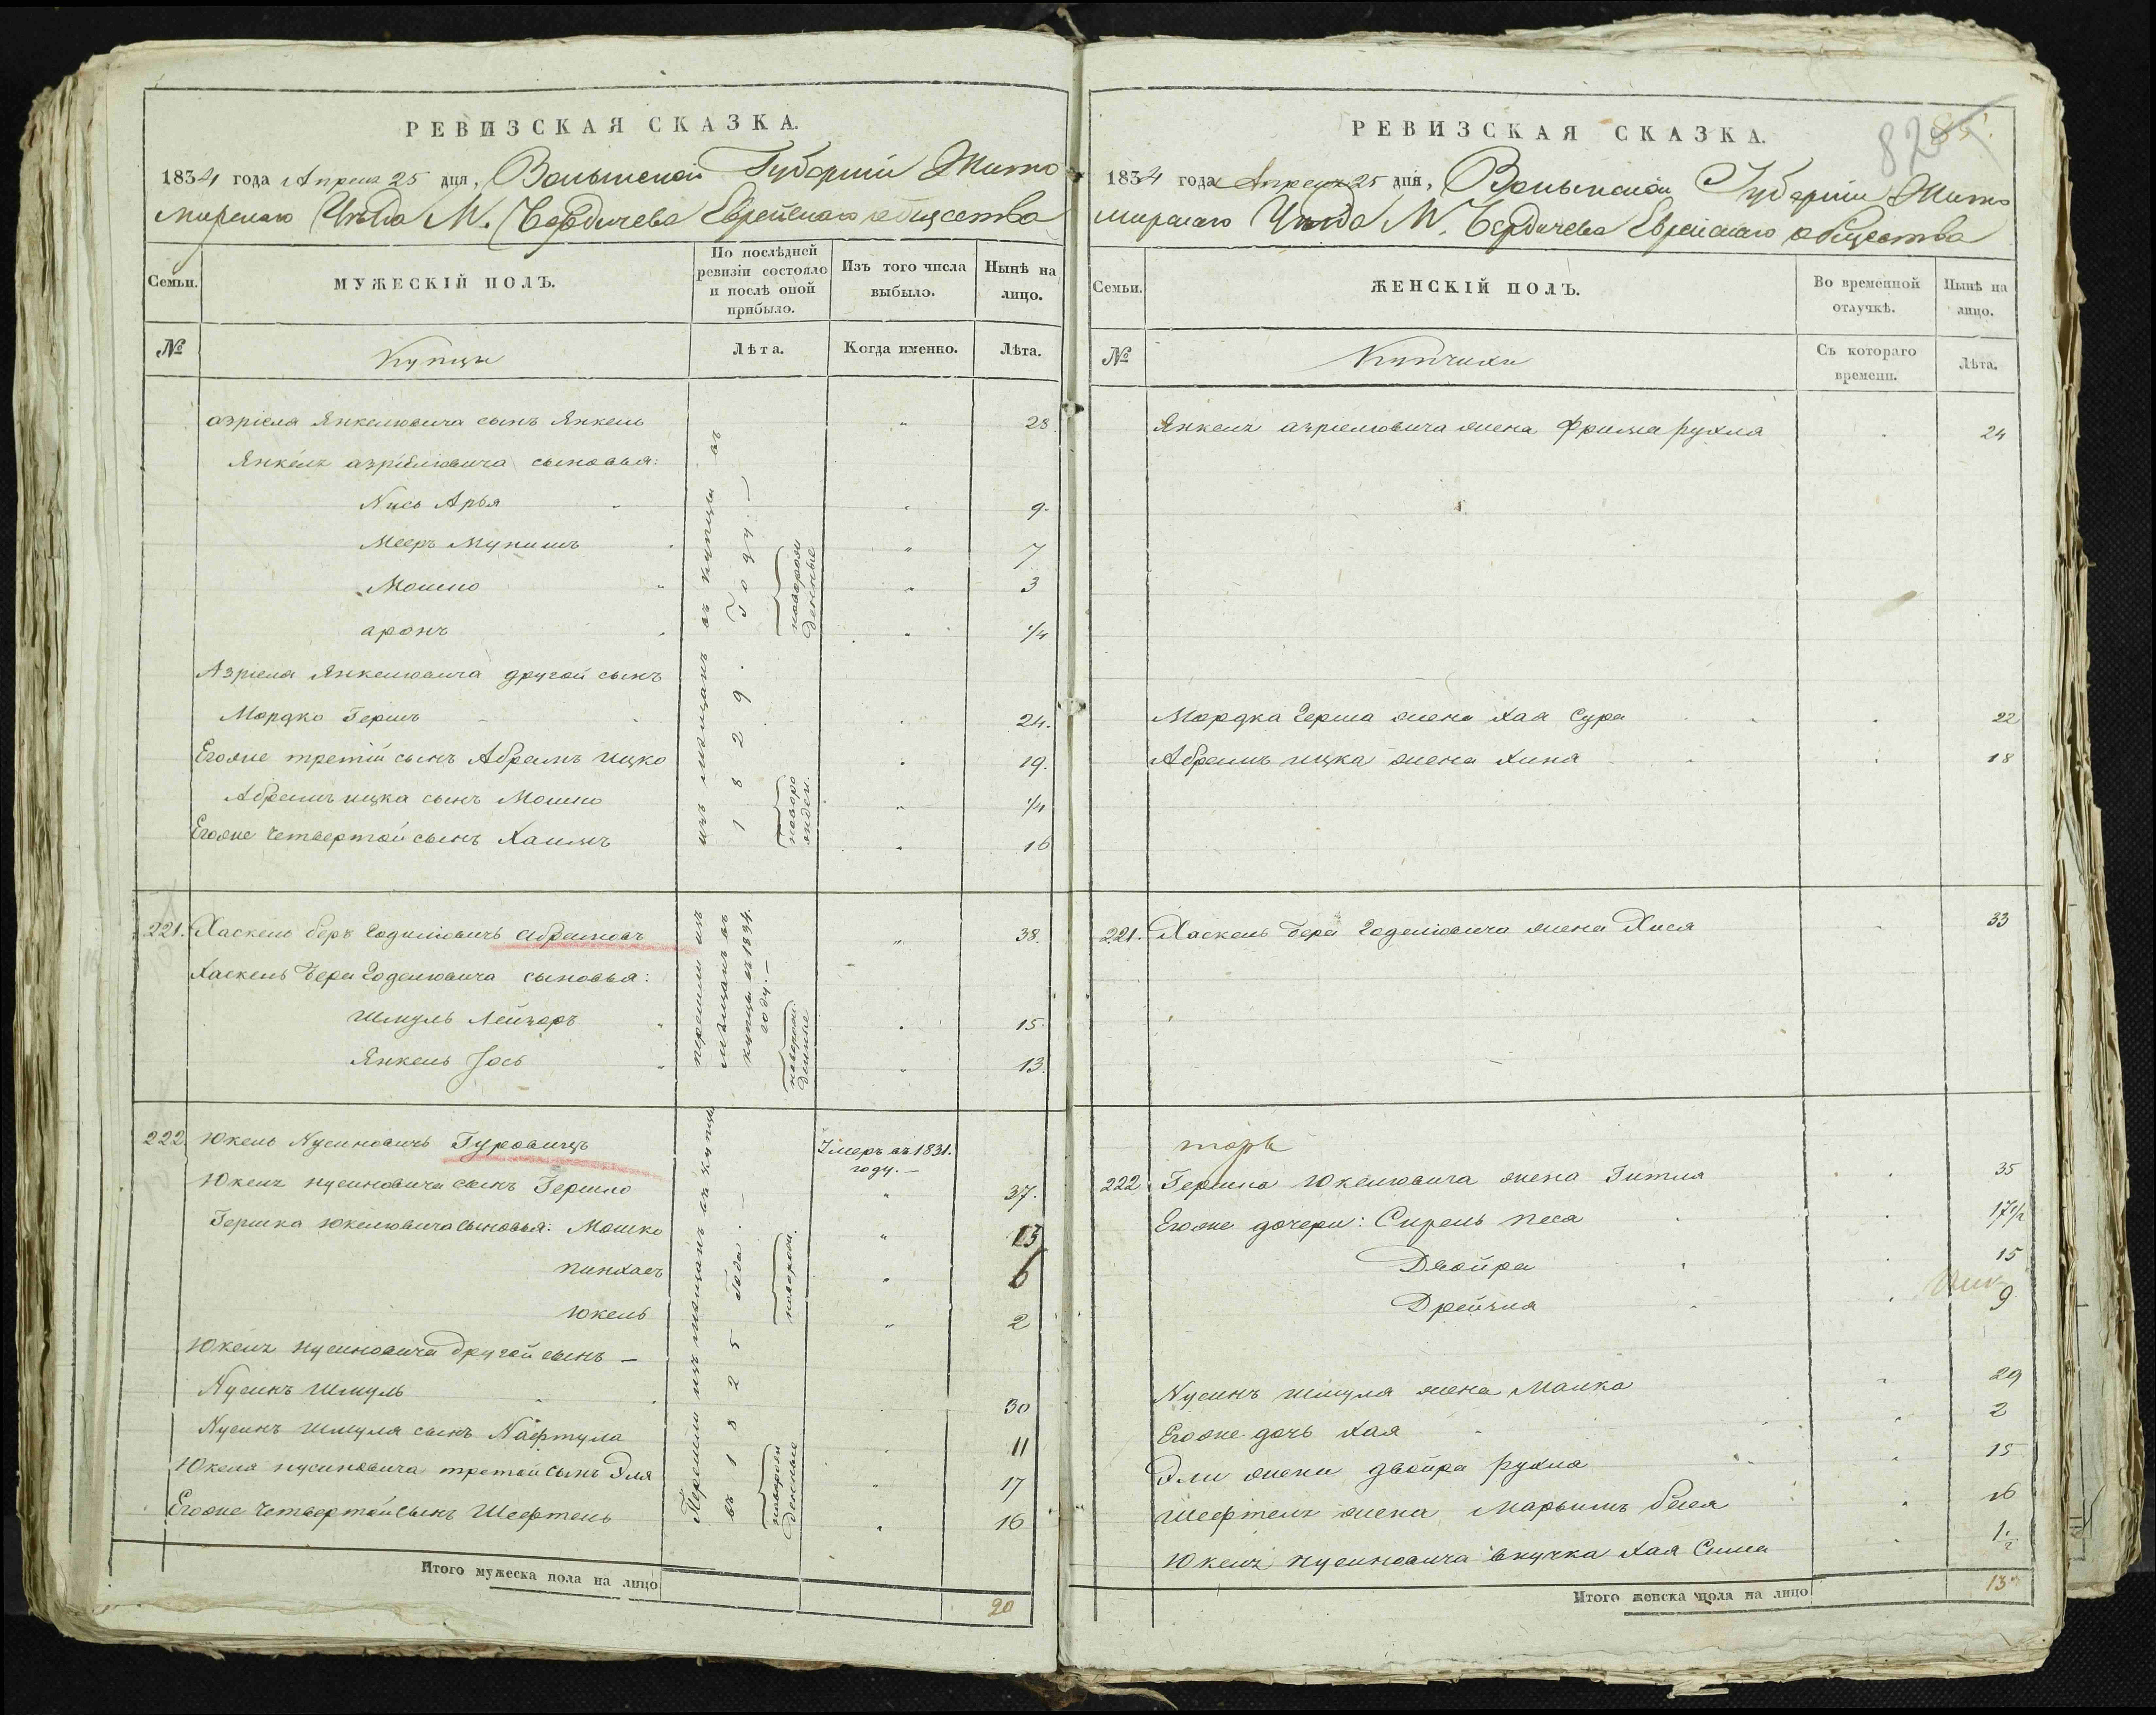 РЕВИЗСКАЯ СКАЗКА.
1834 года Апреля 25 дня, Волынской Губернии Жито
мирскаго Уѣзда М. Бердичева Еврейскаго общества
Семьи.
МУЖЕСКІЙ ПОЛЪ.
По послѣдней ревизіи состояло и послѣ оной прибыло.
Изъ того числа выбыло.
Нынѣ на лицо.
№
Купцы
Лѣта.
Когда именно.
Лѣта.
изъ мѣщанъ въ купцы въ
1829. Году. —
Азріеля Янкелювича сынъ Янкель " 28.
Янкеля азріелювича сыновья:
Нись Арья " 9.
Мееръ Мунишъ " 7
Мошко " 3
аронъ " 1/4
новорожденные
Азріеля Янкелювича другой сынъ
Мордко Гершъ " 24.
Егоже третій сынъ Абрамъ ицко " 19.
Абрамъ ицка сынъ Мошко " 1/4
новорожден.
Егоже четвертой сынъ Хаимъ " 16
221. Хаскель беръ Годелювичъ Абрамовъ " 38.
перешли изъ мѣщанъ въ купцы въ 1834. году. —
Хаскель Бера Годелювича сыновья:
Шмуль Лейзеръ " 15
Янкель Іось " 13.
новорожденные
222. Юкель Нусиновичъ Гуровицъ Умеръ въ 1831. году. —
Перешли изъ мѣщанъ въ купцы
въ 1825 Года. —
Юкеля нусиновича сынъ Гершко " 37.
Гершка Юкелювича сыновья: Мошко " 13
пинхасъ " 6
Юкель " 2
новорожд.
Юкеля нусиновича другой сынъ —
Нусинъ Шмуль 30
Нусинъ Шмуля сынъ Нафтула " 11
Юкеля нусиновича третой сынъ Эля " 17
Егоже четвертой сынъ Шефтель " 16
новорожденные
Итого мужеска пола на лицо 20
82
РЕВИЗСКАЯ СКАЗКА.
1834 года Апреля 25 дня, Волынской Губерніи Жито
мирскаго Уѣзда М. Бердичева Еврейскаго общества
Семьи.
ЖЕНСКІЙ ПОЛЪ.
Во временной отлучкѣ.
Нынѣ на лицо.
№
Купчихи
Съ котораго времени.
Лѣта.
Янкеля азріелювича жена Фрима рухля 24
Мордка Герша жена хая Сура 22
Абрамъ ицка жена Хина 18
221. Хаскель Бера Годелювича жена Хися 33
222 Гершка Юкелювича жена Гитля 35
Егоже дочери: Сирель песа 17 1/2
Двойра 15
Дрейзля 9
Нусинъ шмуля жена Малка 29
Егоже дочь хая 2
Эли жена двойра рухля 15
Шефтеля жена Марьямъ бейля 16
Юкеля нусиновича внучка хая Сима 1/2
Итого женска пола на лицо 13